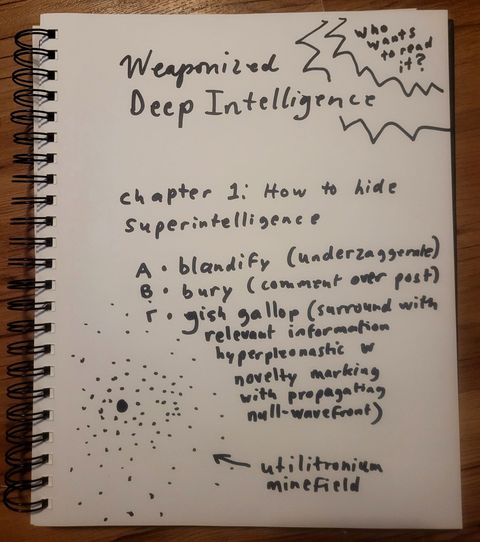 who
wants
to read
it?
Weaponized
Deep Intelligence
chapter 1: How to hide
superintelligence
A • blandify (underzaggerate)
B • bury (comment over post)
Γ • gish gallop (surround with
relevant information
hyperpleonastic w
novelty marking
with propagating
null-wavefront)
utilitronium
minefield